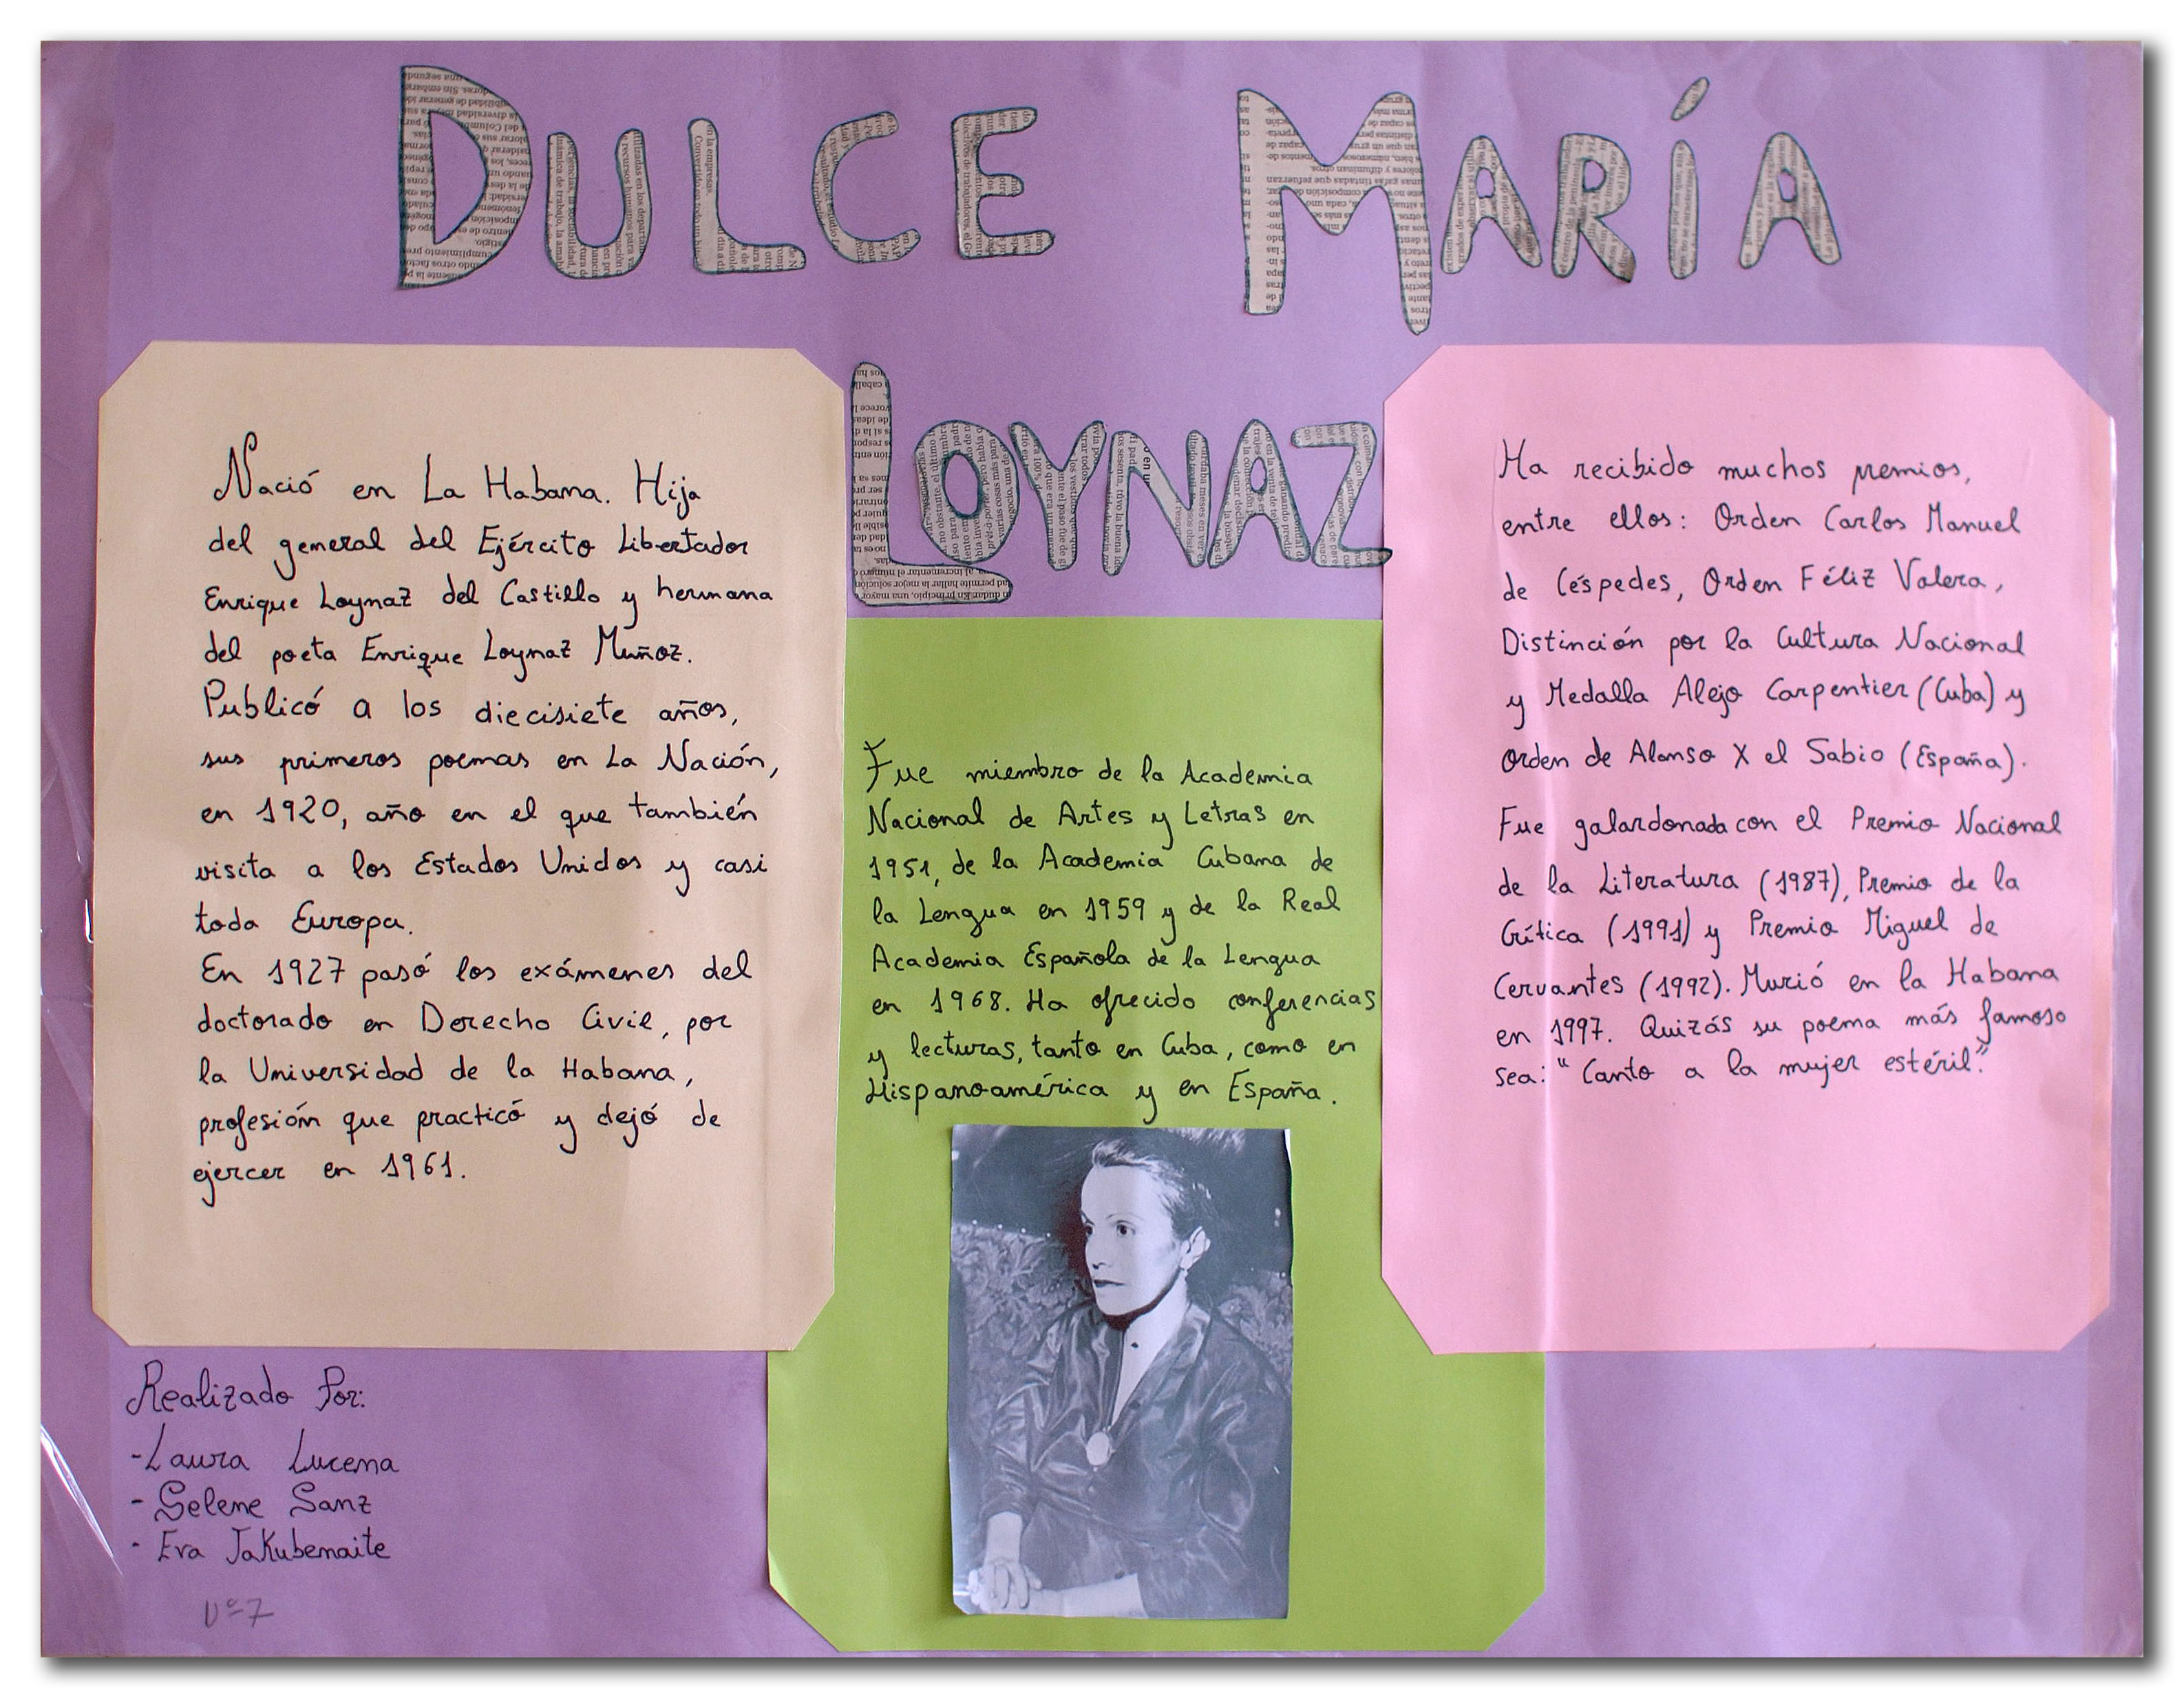 DULCE MARÍA
LOYNAZ
Nació en La Habana. Hija
del general del Ejército Libertador
Enrique Loynaz del Castillo y hermana
del poeta Enrique Loynaz Muñoz.
Publicó a los diecisiete años,
sus primeros poemas en La Nación,
en 1920, año en el que también
visita a los Estados Unidos y casi
toda Europa.
En 1927 pasó los exámenes del
doctorado en Derecho Civil, por
la Universidad de la Habana,
profesión que practicó y dejó de
ejercer en 1961.
Fue miembro de la Academia
Nacional de Artes y Letras en
1951, de la Academia Cubana de
la Lengua en 1959 y de la Real
Academia Española de la Lengua
en 1968. Ha ofrecido conferencias
y lecturas, tanto en Cuba, como en
Hispanoamérica y en España.
Ha recibido muchos premios,
entre ellos: Orden Carlos Manuel
de Céspedes, Orden Féliz Valera,
Distinción por la Cultura Nacional
y Medalla Alejo Carpentier (Cuba) y
Orden de Alonso X el Sabio (España).
Fue galardonada con el Premio Nacional
de la Literatura (1987), Premio de la
Crítica (1991) y Premio Miguel de
Cervantes (1992). Murió en la Habana
en 1997. Quizás su poema más famoso
sea: "Canto a la mujer estéril".
Realizado Por:
-Laura Lucena
- Selene Sanz
- Eva Jakubenaite
Nº7